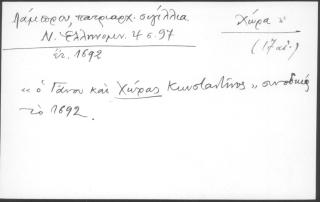 Λάμπρου, πατριαρχ. σιγίλλια
Χώρα
Ν. Ἑλληνομν. 4 σ. 97
(17 αἰ.)
ἔτ. 1692
«ὁ Γάνου καὶ Χώρας Κωνσταντῖνος» συνοδικῶς
τὸ 1692.